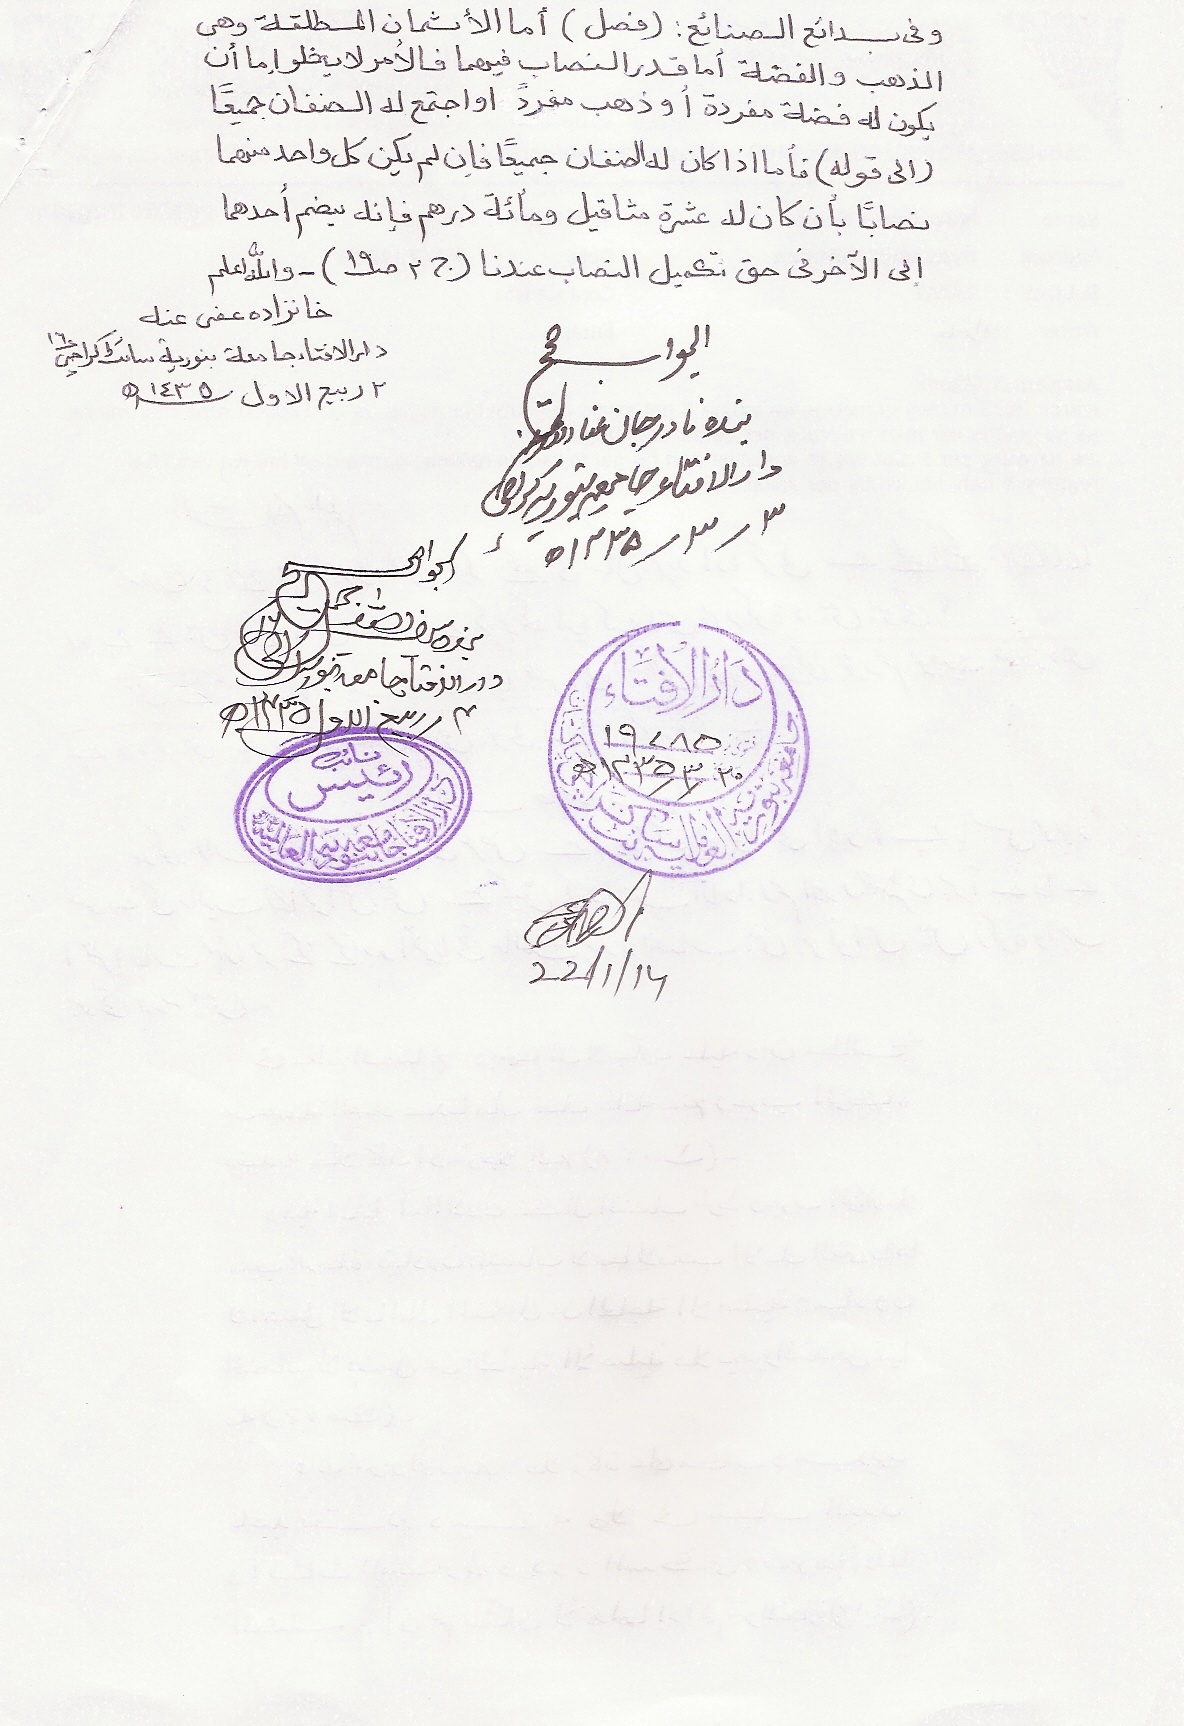 وفى بدائع الصنائع: (فصل) أما الأثمان المطلقة وهى
الذهب والفضة أما قدر النصاب فيهما فالأمر لا يخلوا إما أن
يكون له فضة مفردة أو ذهب مفردً او اجتمع له الصنفان جميعًا
(الى قوله) فأما اذا كان له الصنفان جميعًا فإن لم يكن كل واحد منهما
نصابًا بأن كان له عشرة مثاقيل ومائة درهم فإنه يضم أحدهما
إلى الآخر فى حق تكميل النصاب عندنا (ج ٢ ص ١٩) - والله اعلم
خانزاده عفى عنه
دار الافتاء جامعة بنورية سائٹ كراچی ١٦
٢ ربيع الاول ١٤٣٥ھ
الجواب صحيح
بنده نادر جان عفا
دار الافتاء جامعہ بنوریہ کراچی
٣ / ٣ / ١٤٣٥ھ
الجواب صحیح
بنده
دار الافتاء جامعہ بنوریہ
٣ ربیع الاول ١٤٣٥ھ
نائب
رئيس
دار الافتاء جامعه بنوريه العالمية
دار الافتاء
١٩٧٨٥
٢٠ / ٣ / ١٤٣٥ھ
جامعه بنوريه العالميه سائٹ كراچی
22/1/14